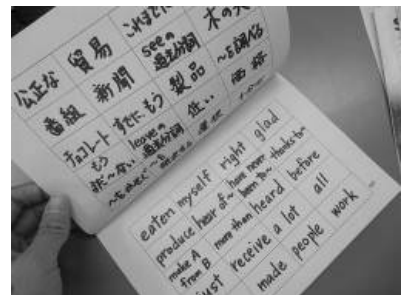 公正な 貿易 これまでに
番組 新聞 seeの過去分詞 ~を調べる
チョコレート すでに もう 製品
もう まだ~ない leaveの過去分詞
eaten myself right glad
produce hear of~ have ever been to~ thanks to~
make A from B more than heard before
just receive a lot all
made people work